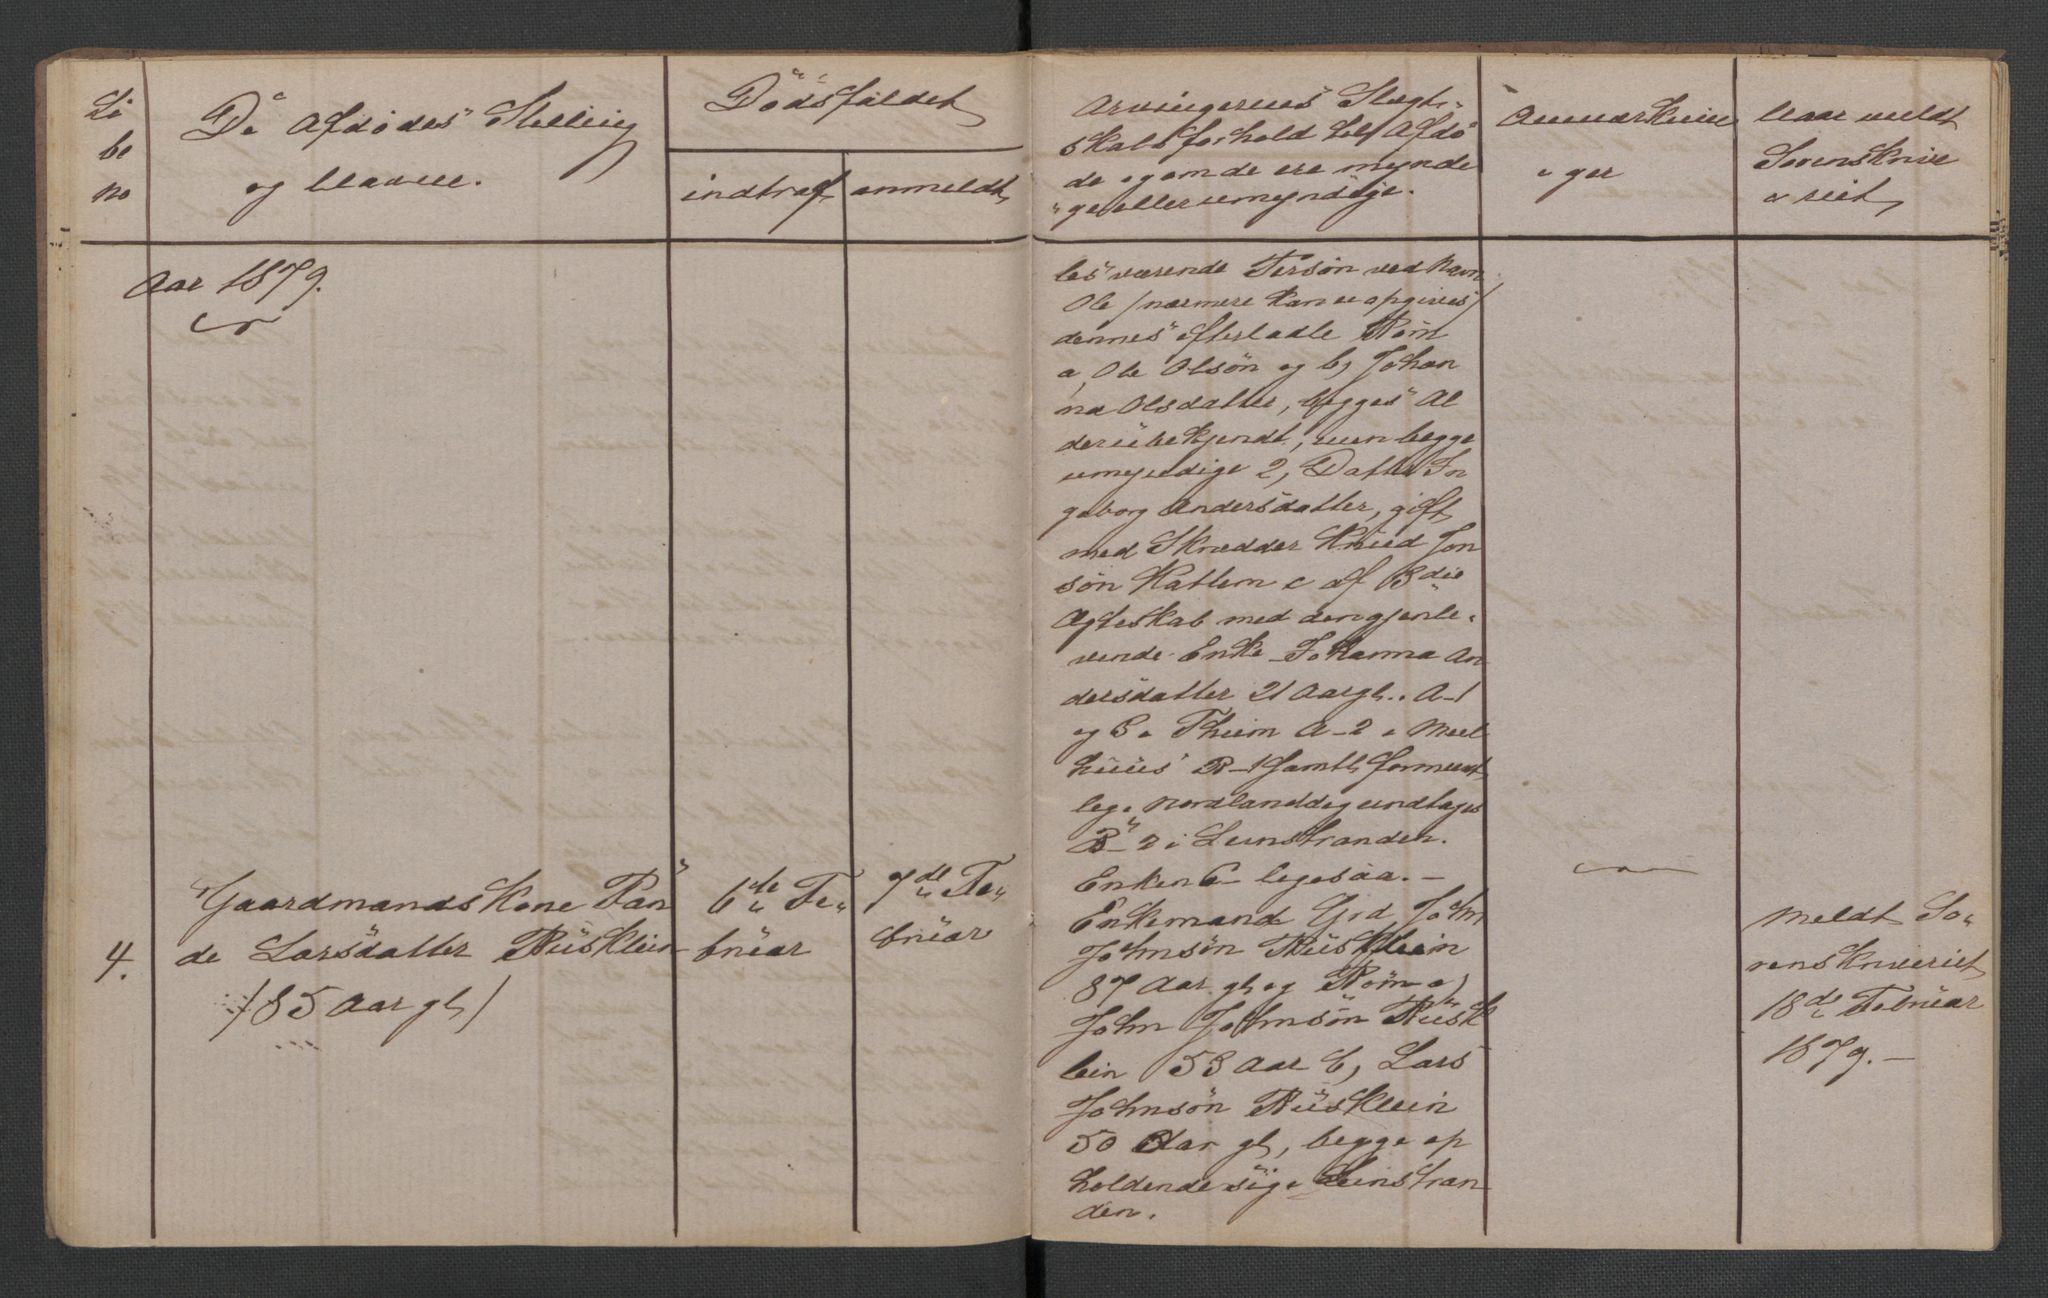 Lö
be
no
De Afdødes Stelling
og Navne.
Dödsfaldet
indtraf
anmeldt,
Arvingernes Slægt-
skabsforhold til Afdö
de og om de ere mynde
ge eller umyndige.
Anmærknin
ger
Naar meldt
Sorenskrive
riet,
Aar 1879.
les værende Person ved Navn
Ole /nærmere kan ei opgives/
dennes efterladte Börn
a, Ole Olsön og b, Johan
na Olsdatter, begges Al
der ubekjendt, men begge
umyndige 2, Datter In
geborg Andersdatter, gift
med Skrædder Knud Jon
sön Hatlem c af 3die
Ægteskab med den gjenle-
vende Enke Johanna An
dersdatter 21 Aar gl. A-1
og 3 i Thiem A-2 i Meel
huus B-1 samtl. formeent
lig i Nordland og undtages
B-2 i Leinstranden.
Enken C ligesaa. -
4.
Gaardmandskone Ran
de Larsdatter Rüsklein
/85 Aar gl/
6te Fe-
brüar
7de Fe-
brüar
Enkemand Grd. John
Johnsön Rüsklein
87 Aar gl. og Börn a)
John Johnsön Rüsk
lein 53 Aar b, Lars
Johnsön Rüsklein
50 Aar gl, begge op
holdende sig i Leinstran
den.
Meldt So-
renskriveriet
18de Febrüar
1879. -